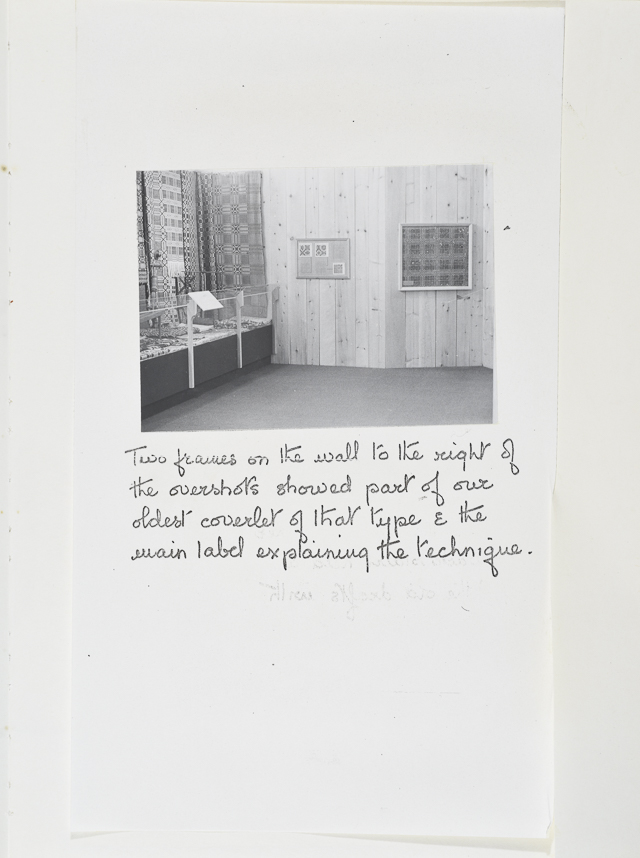 Two frames on the wall to the right of
the overshots showed part of our
oldest coverlet of that type & the
main label explaining the technique.